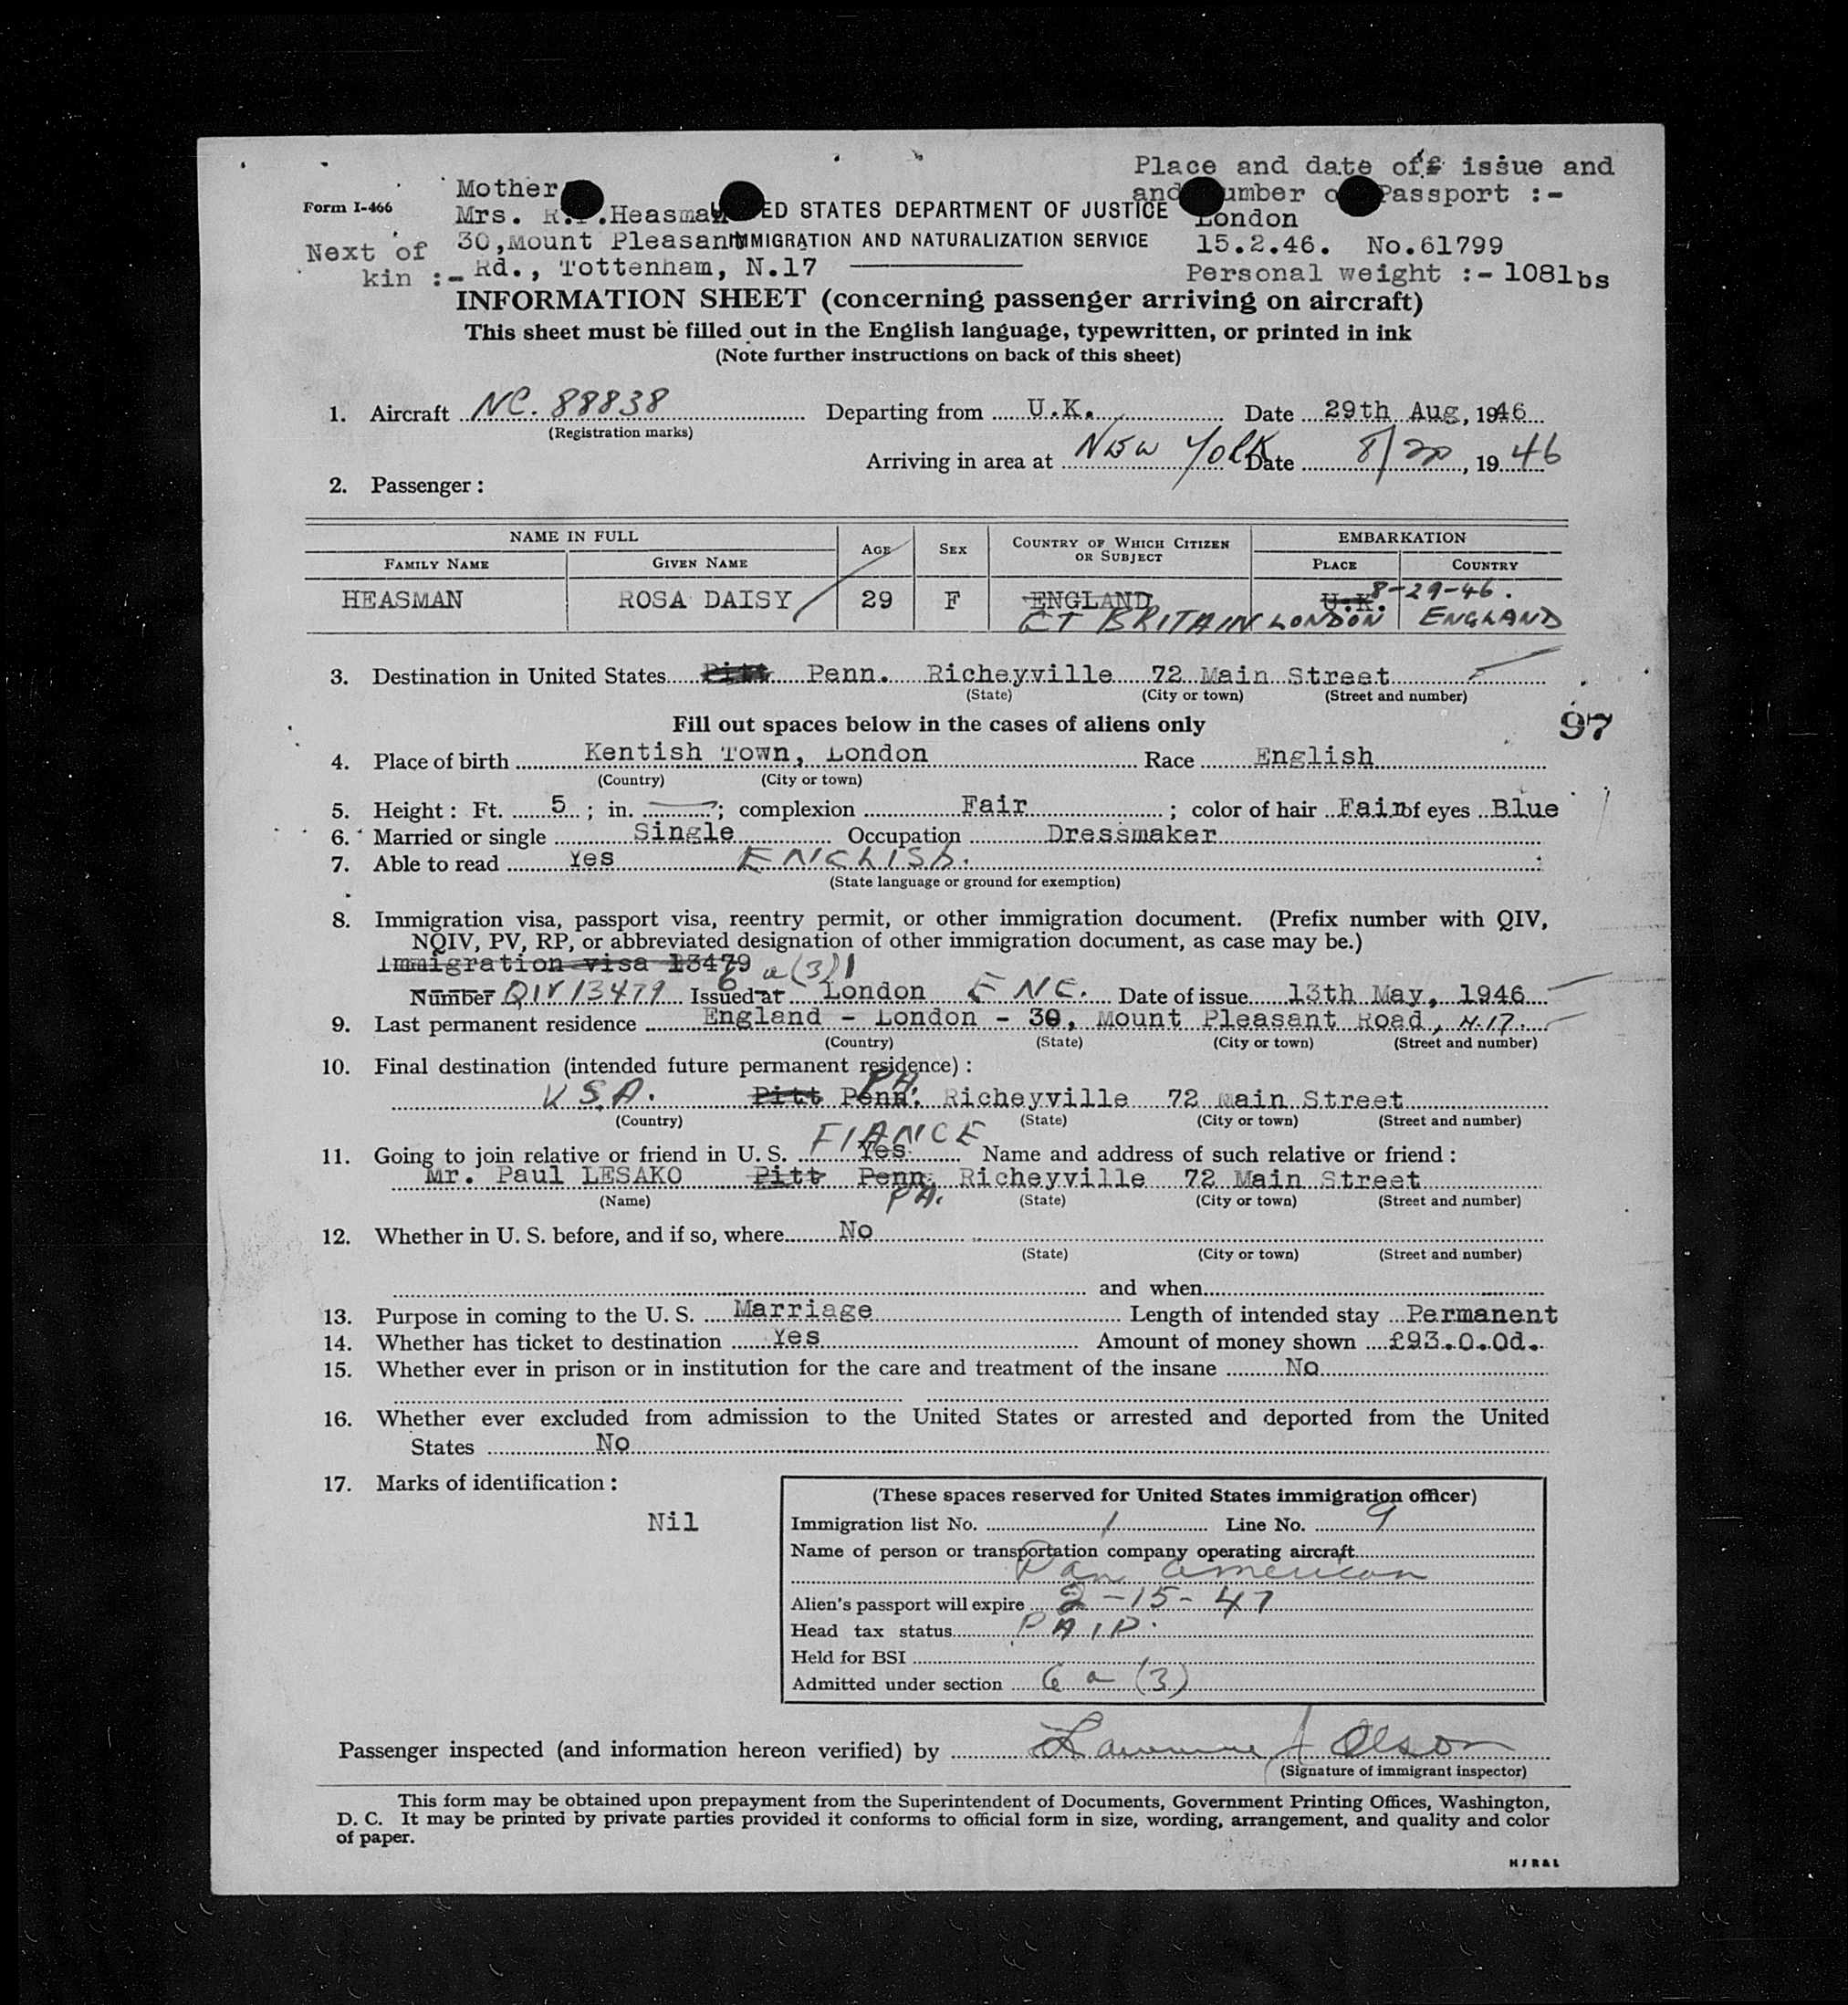 Place and date off issue and
Mother
and umber o Passport :-
Form I-466
Mrs. R. .Heasman
ED STATES DEPARTMENT OF JUSTICE
London
Next of
30,Mount Pleasant
IMMIGRATION AND NATURALIZATION SERVICE
15.2.46. No.61799
kin :-
Rd., Tottenham, N.17
Personal weight :- 108lbs
INFORMATION SHEET (concerning passenger arriving on aircraft)
This sheet must be filled out in the English language, typewritten, or printed in ink
(Note further instructions on back of this sheet)
1. Aircraft NC. 88838 Departing from U.K. Date 29th Aug, 1946
(Registration marks)
Arriving in area at NEW YORK Date 8/ , 1946
2. Passenger :
NAME IN FULL AGE SEX COUNTRY OF WHICH CITIZEN OR SUBJECT EMBARKATION
FAMILY NAME GIVEN NAME PLACE COUNTRY
8-29-46.
HEASMAN ROSA DAISY 29 F ENGLAND U.K.
GT BRITAIN LONDON ENGLAND
3. Destination in United States Pitt Penn. Richeyville 72 Main Street
(State) (City or town) (Street and number)
Fill out spaces below in the cases of aliens only
97
4. Place of birth Kentish Town, London Race English
(Country) (City or town)
5. Height : Ft. 5 ; in. — ; complexion Fair ; color of hair Fair of eyes Blue
6. Married or single Single Occupation Dressmaker
7. Able to read Yes ENGLISH.
(State language or ground for exemption)
8. Immigration visa, passport visa, reentry permit, or other immigration document. (Prefix number with QIV,
NQIV, PV, RP, or abbreviated designation of other immigration document, as case may be.)
Immigration visa 13479
6 a (3)
Number QIV 13479 Issued at London ENG. Date of issue 13th May, 1946
9. Last permanent residence England - London - 30, Mount Pleasant Road, N.17.
(Country) (State) (City or town) (Street and number)
10. Final destination (intended future permanent residence) :
PA.
U.S.A. Pitt Penn. Richeyville 72 Main Street
(Country) (State) (City or town) (Street and number)
FIANCE
11. Going to join relative or friend in U. S. Yes Name and address of such relative or friend :
Mr. Paul LESAKO Pitt Penn. Richeyville 72 Main Street
PA.
(Name) (State) (City or town) (Street and number)
12. Whether in U. S. before, and if so, where No
(State) (City or town) (Street and number)
and when
13. Purpose in coming to the U. S. Marriage Length of intended stay Permanent
14. Whether has ticket to destination Yes Amount of money shown £93.0.0d.
15. Whether ever in prison or in institution for the care and treatment of the insane No
16. Whether ever excluded from admission to the United States or arrested and deported from the United
States No
17. Marks of identification :
Nil
(These spaces reserved for United States immigration officer)
Immigration list No. 1 Line No. 9
Name of person or transportation company operating aircraft
Pan American
Alien's passport will expire 2-15-47
Head tax status PAID.
Held for BSI
Admitted under section 6 a (3)
Passenger inspected (and information hereon verified) by Lawrence J Olson
(Signature of immigrant inspector)
This form may be obtained upon prepayment from the Superintendent of Documents, Government Printing Offices, Washington,
D. C. It may be printed by private parties provided it conforms to official form in size, wording, arrangement, and quality and color
of paper.
HJR&L